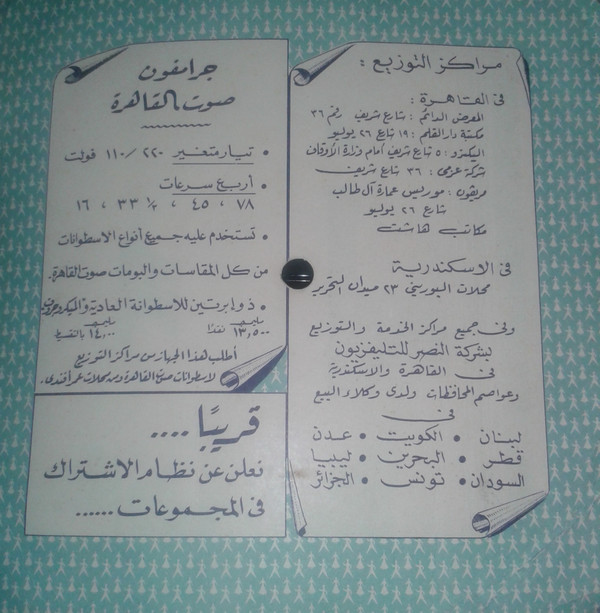 مراكز التوزيع :
فى القاهرة :
المعرض الدائم : شارع شريف رقم ٣٦
مكتبة دار القلم : ١٩ شارع ٢٦ يوليو
اليكترو : ٥ شارع شريف أمام وزارة الأوقاف
شركة عرمى : ٣٦ شارع شريف
مريفون : موريس عمارة آل طالب
شارع ٢٦ يوليو
مكاتب هاشت
فى الاسكندرية
محلات البورينى ٢٣ ميدان التحرير
وفى جميع مراكز الخدمة والتوزيع
بشركة النصر للتليفزيون
فى القاهرة والاسكندرية
وعواصم المحافظات ولدى وكلاء البيع
فى
لبنان • الكويت • عدن
قطر • البحرين • ليبيا
السودان • تونس • الجزائر
جرامفون
صوت القاهرة
• تيار متغير ٢٢٠ / ١١٠ فولت
• أربع سرعات
٧٨ ، ٤٥ ، ½ ٣٣ ، ١٦
• تستخدم عليه جميع أنواع الاسطوانات
من كل المقاسات والبومات صوت القاهرة.
• ذو إبرتين للاسطوانة العادية والميكروجروف
مليم جـ ١٣,٥٠٠ نقدا مليم جـ ١٤,٠٠٠ بالتقسيط
أطلب هذا الجهاز من مراكز التوزيع
لاسطوانات صوت القاهرة ومن محلات عمر أفندى .
قريبًا ....
نعلن عن نظام الاشتراك
فى المجموعات ......